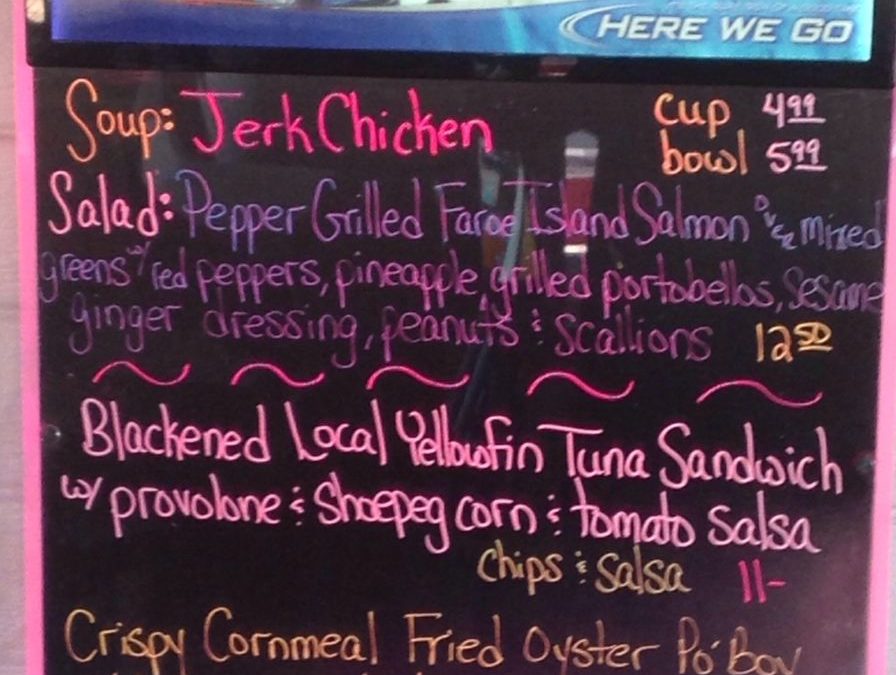 HERE WE GO
Soup: Jerk Chicken cup 4.99
bowl 5.99
Salad: Pepper Grilled Faroe Island Salmon over mixed
greens w/ red peppers, pineapple, grilled portobellos, Sesame
ginger dressing, peanuts & Scallions 12.50
Blackened Local Yellowfin Tuna Sandwich
w/ provolone & Shoepeg corn & tomato Salsa
chips & Salsa 11-
Crispy Cornmeal Fried Oyster Po' Boy